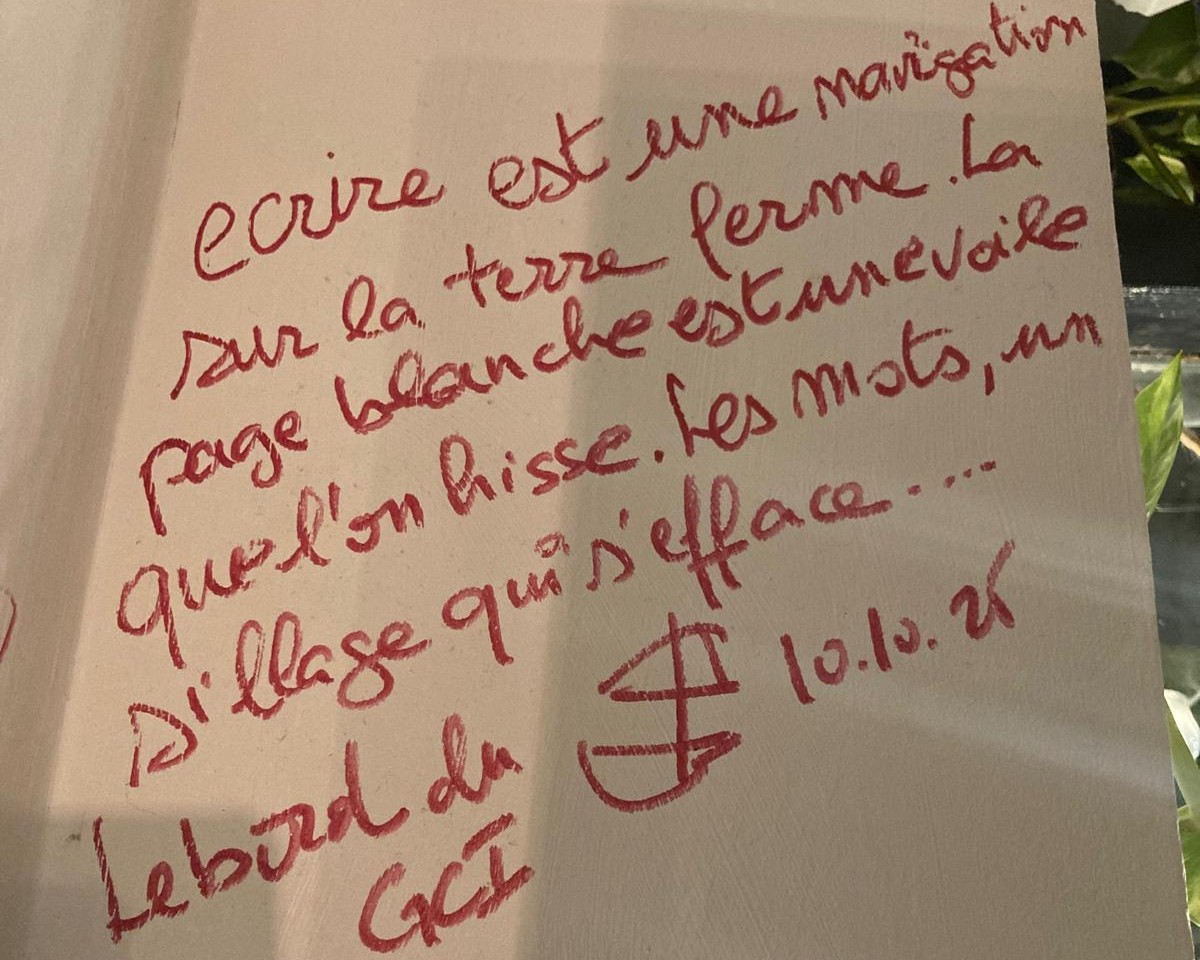 ecrire est une navigation
sur la terre ferme. La
page blanche est une voile
que l'on hisse. Les mots, un
sillage qui s'efface....
10.10.25
Le bord du
GCI